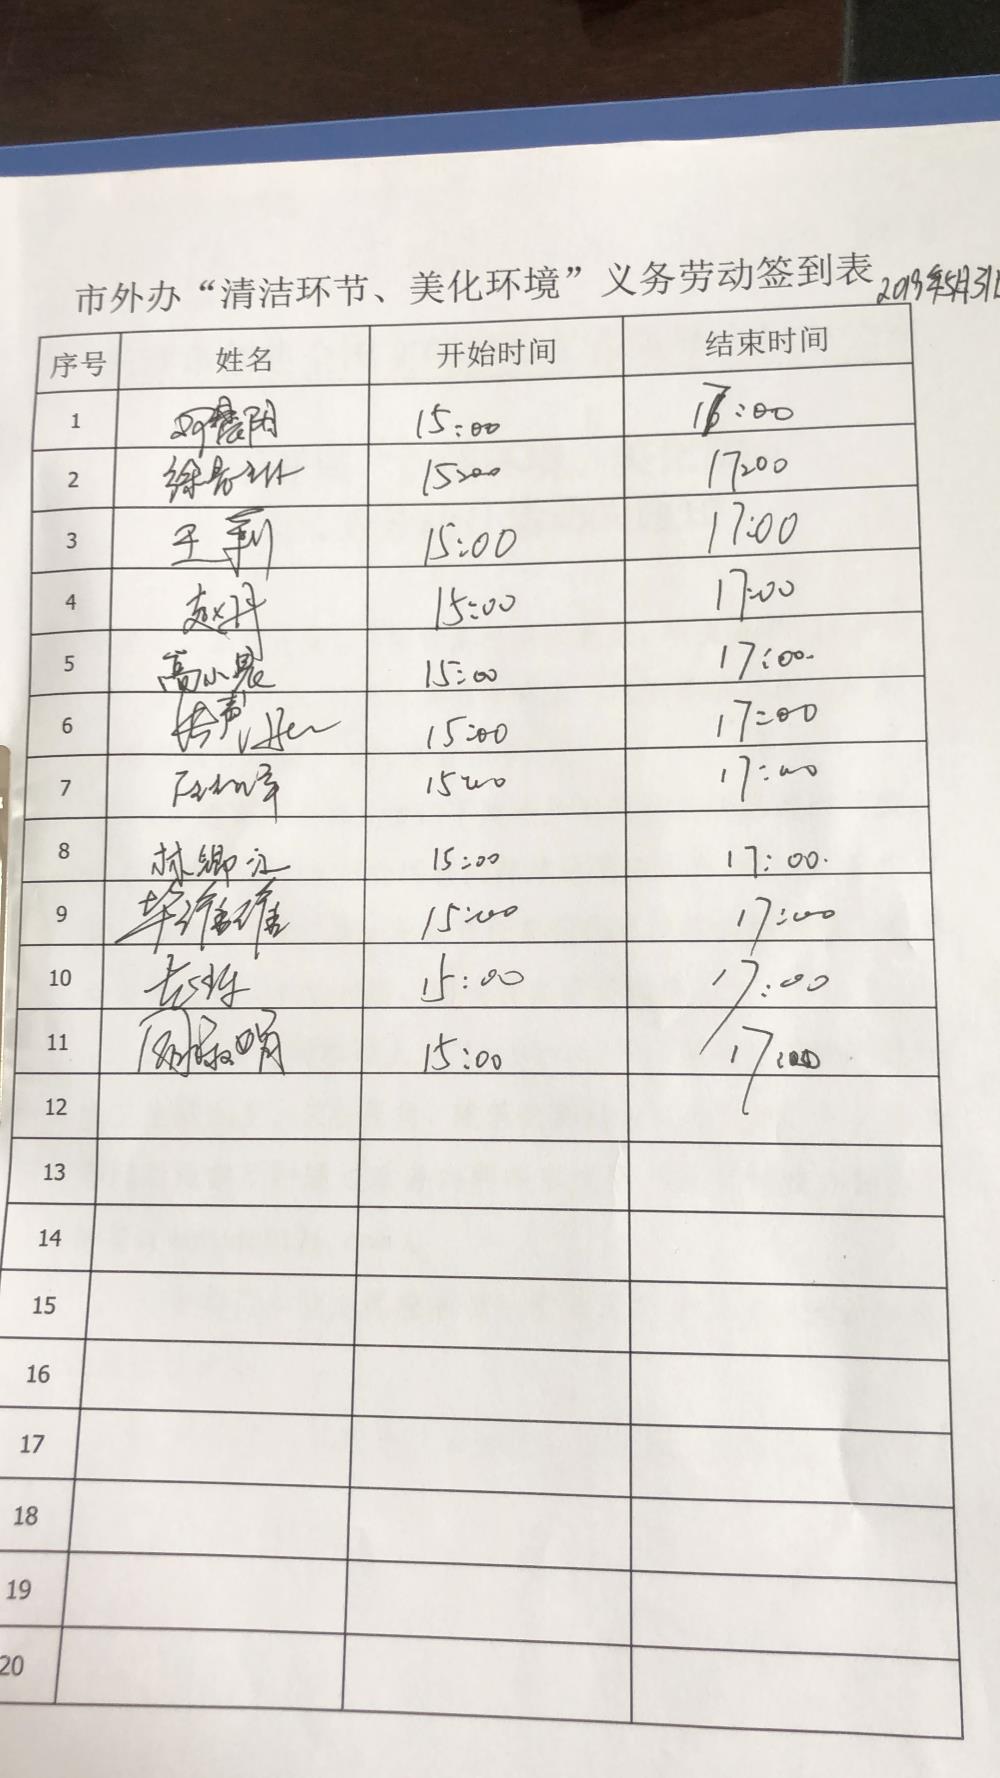 市外办“清洁环节、美化环境”义务劳动签到表 2019年5月31日
序号 姓名 开始时间 结束时间
1 15:00 17:00
2 15:00 17:00
3 王莉 15:00 17:00
4 赵丹 15:00 17:00
5 高小晨 15:00 17:00
6 15:00 17:00
7 15:00 17:00
8 林卿立 15:00 17:00.
9 毕维维 15:00 17:00
10 15:00 17:00
11 周淑娟 15:00 17:00
12
13
14
15
16
17
18
19
20